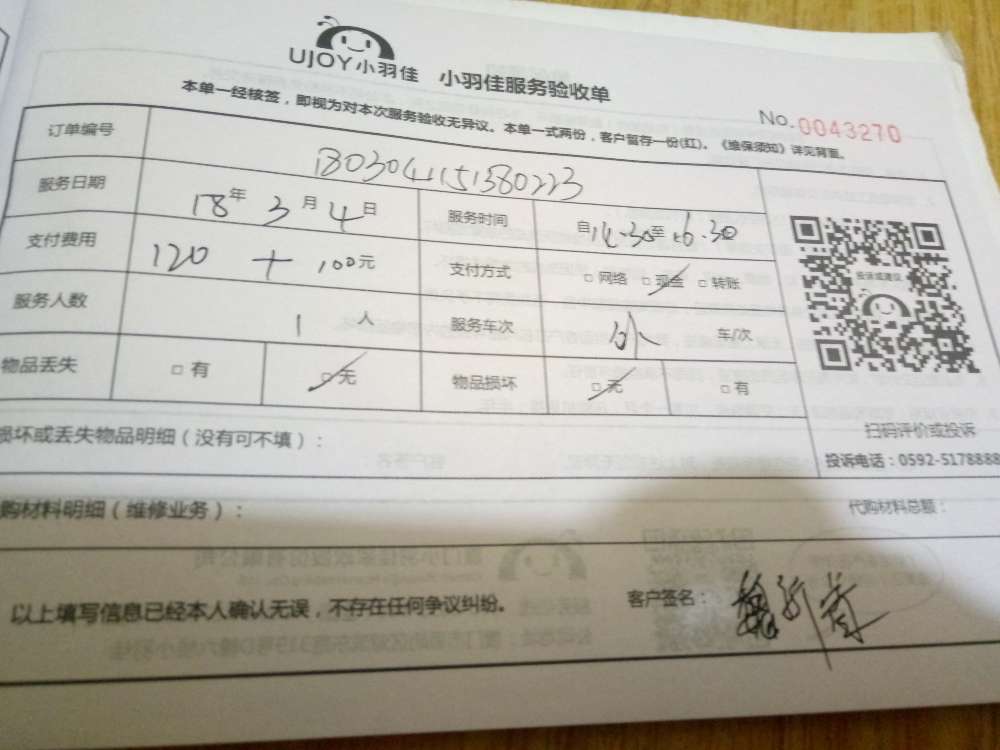 UJOY小羽佳 小羽佳服务验收单
No.0043270
本单一经核签，即视为对本次服务验收无异议。本单一式两份，客户留存一份(红)。《维保须知》详见背面。
订单编号 1803041151380223
服务日期 18年3月4日 服务时间 自14.30至16.30
支付费用 120 + 100元 支付方式 □网络 □现金 □转账
服务人数 1人 服务车次 车/次
物品丢失 □有 □无 物品损坏 □无 □有
投诉或建议
扫码评价或投诉
投诉电话：0592-5178888
损坏或丢失物品明细（没有可不填）：
购材料明细（维修业务）： 代购材料总额：
以上填写信息已经本人确认无误，不存在任何争议纠纷。 客户签名：